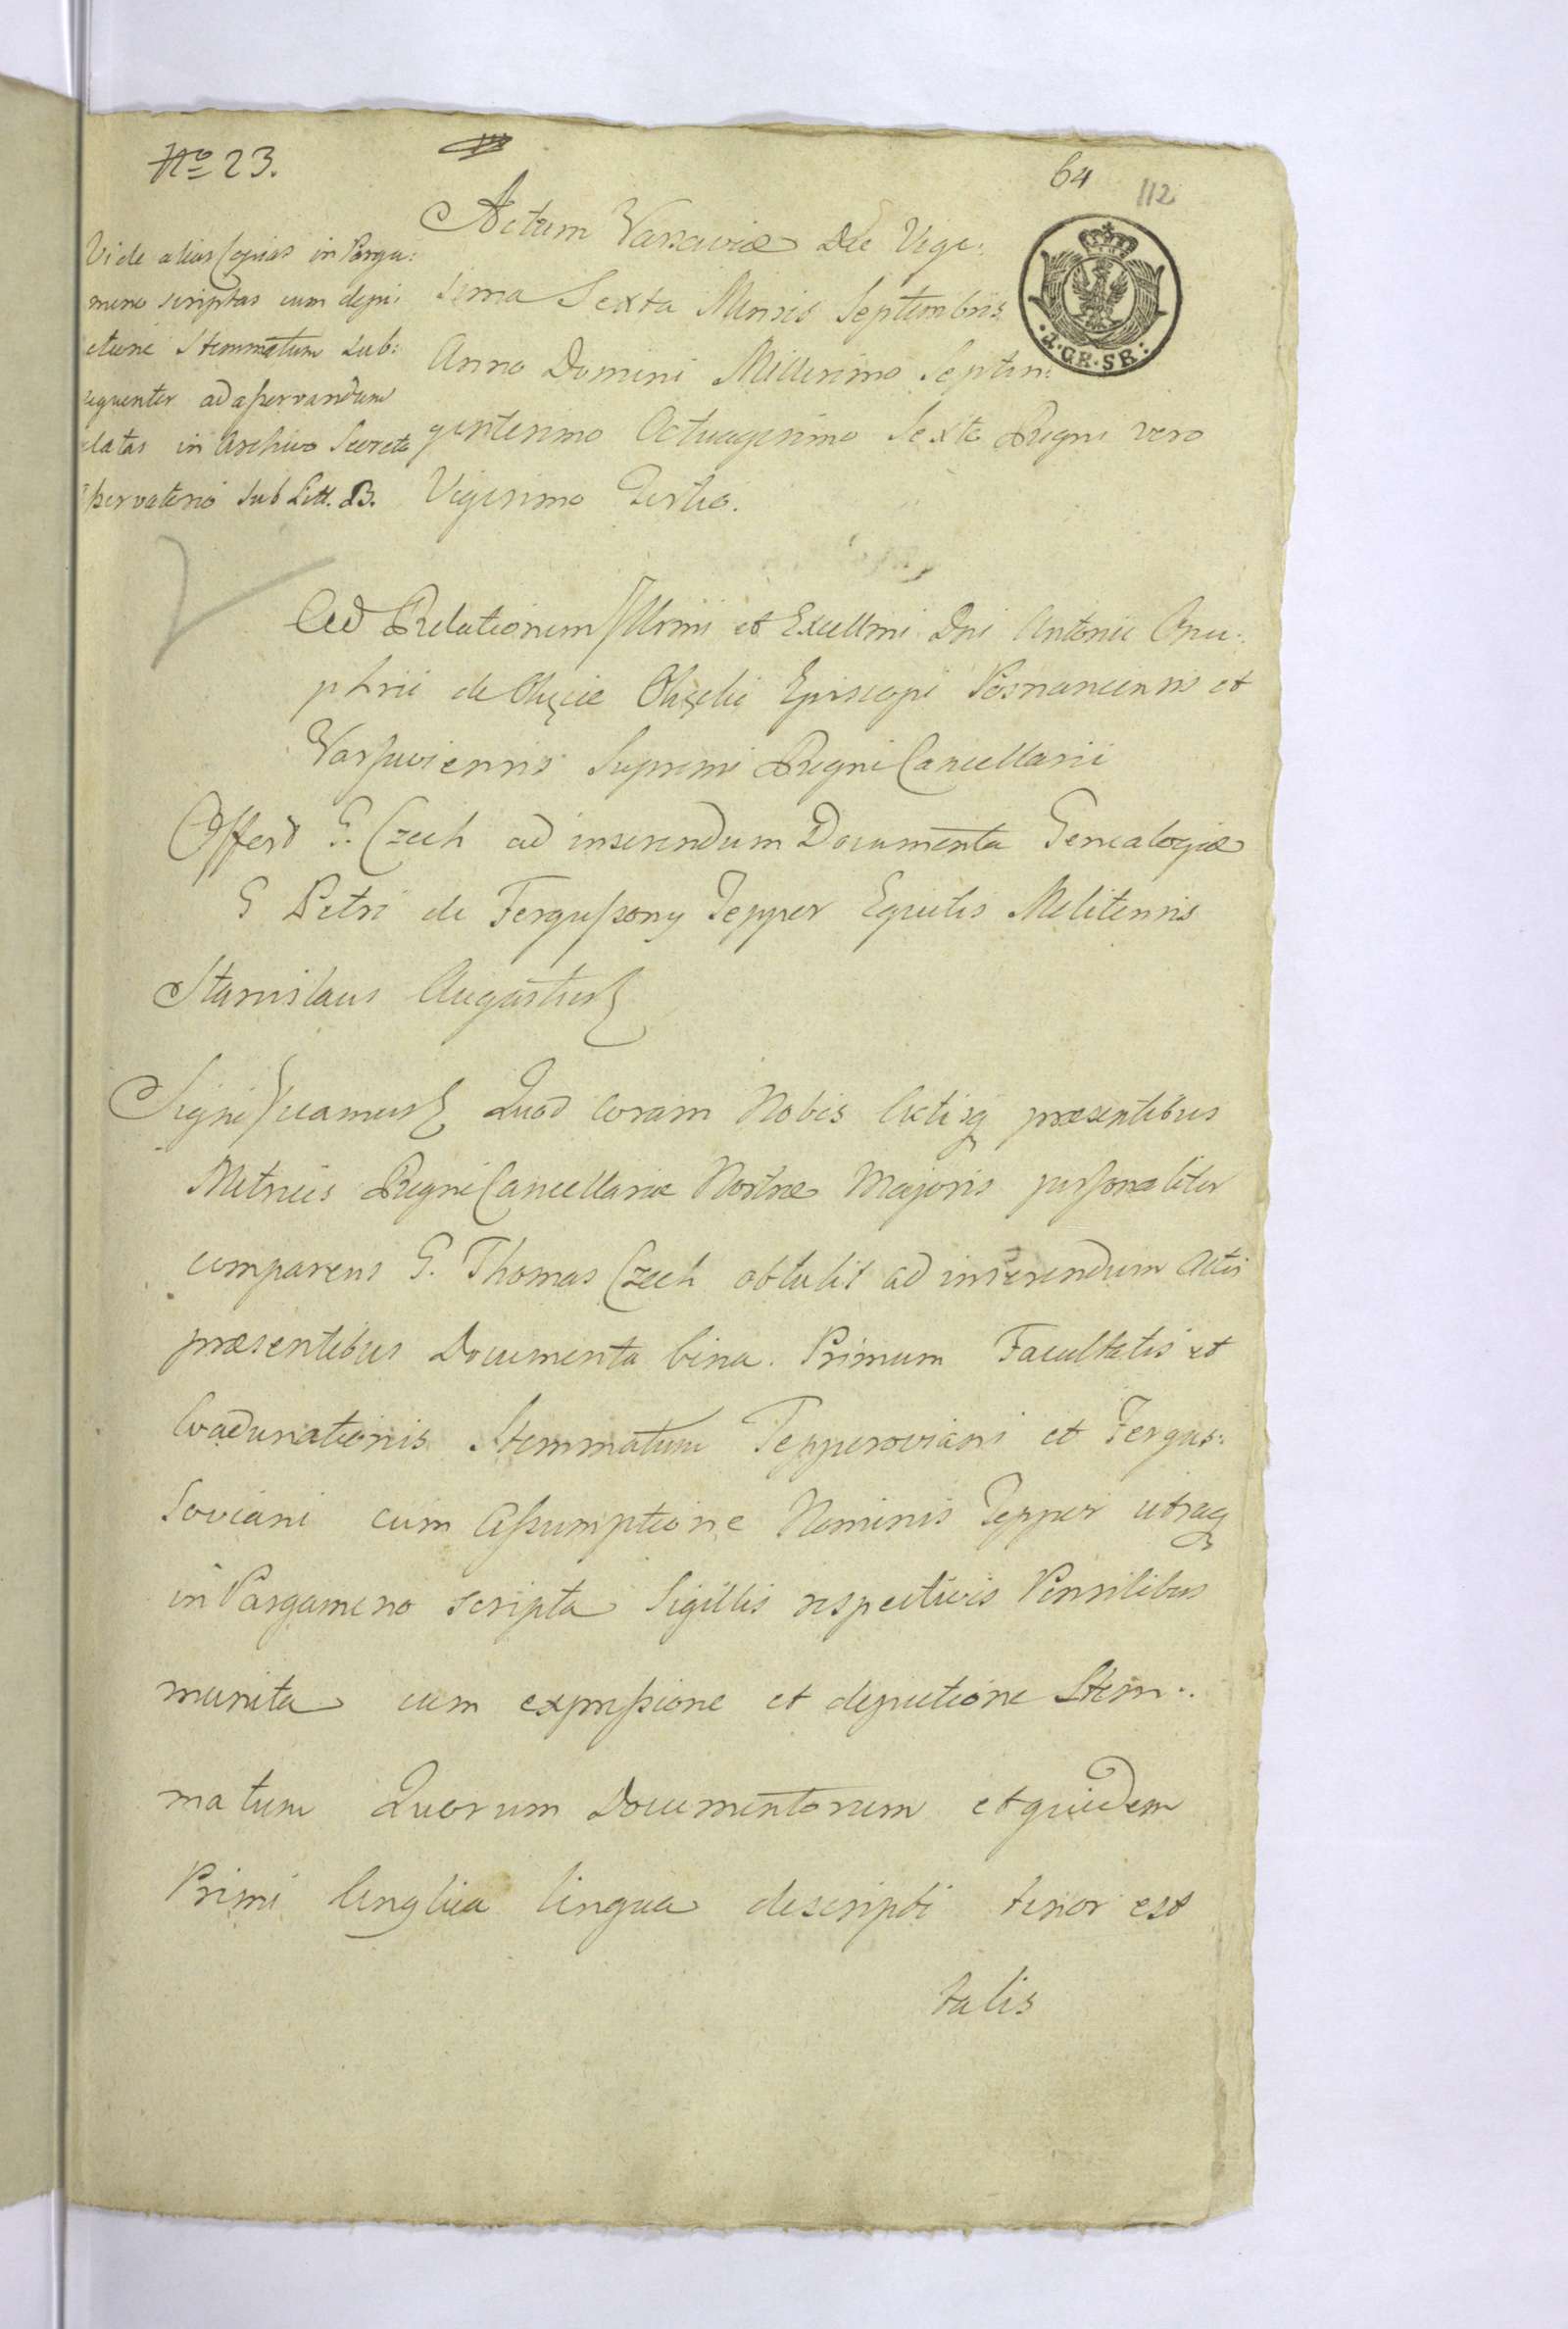 No 23.
64
112
Vide alias Copias in Parga:
meno scriptas cum depi:
ctione Stemmatum sub:
sequenter ad aſservandum
datas in Archivo Secreto
sub Litt. B.
Actum Varsaviæ Die Vige:
sima Sexta Mensis Septembris
Anno Domini Millesimo Septin:
gentesimo Octuagesimo Sexto Regni vero
Vigesimo Tertio.
·2·GR·SR·
Ad Relationem Illrmi et Excellmi Dni Antonii Onu:
phrii de Okęcie Okęcki Episcopi Posnaniensis et
Varſaviensis Supremi Regni Cancellarii
Offert G. Czech ad inserendum Documenta Genealogiæ
G Petri de Ferguſsony Tepper Equitis Melitensis
Stanislaus Augustus
Significamus Quod Coram Nobis Actisq præsentibus
Metrices Regni Cancellariæ Nostræ Majoris perſonaliter
comparens G. Thomas Czech obtulit ad inserendum Actis
præsentibus Documenta bina. Primum Facultatis et
Coadunationis Stemmatum Tepperoviani et Fergus:
soviani cum Aſsumptione Nominis Tepper utraq
in Pargameno scripta Sigillis respectivis Pensilibus
munita cum expreſsione et depictione Stem:
matum Quorum Documentorum et quidem
Primi Anglica lingua descripti tenor est
talis